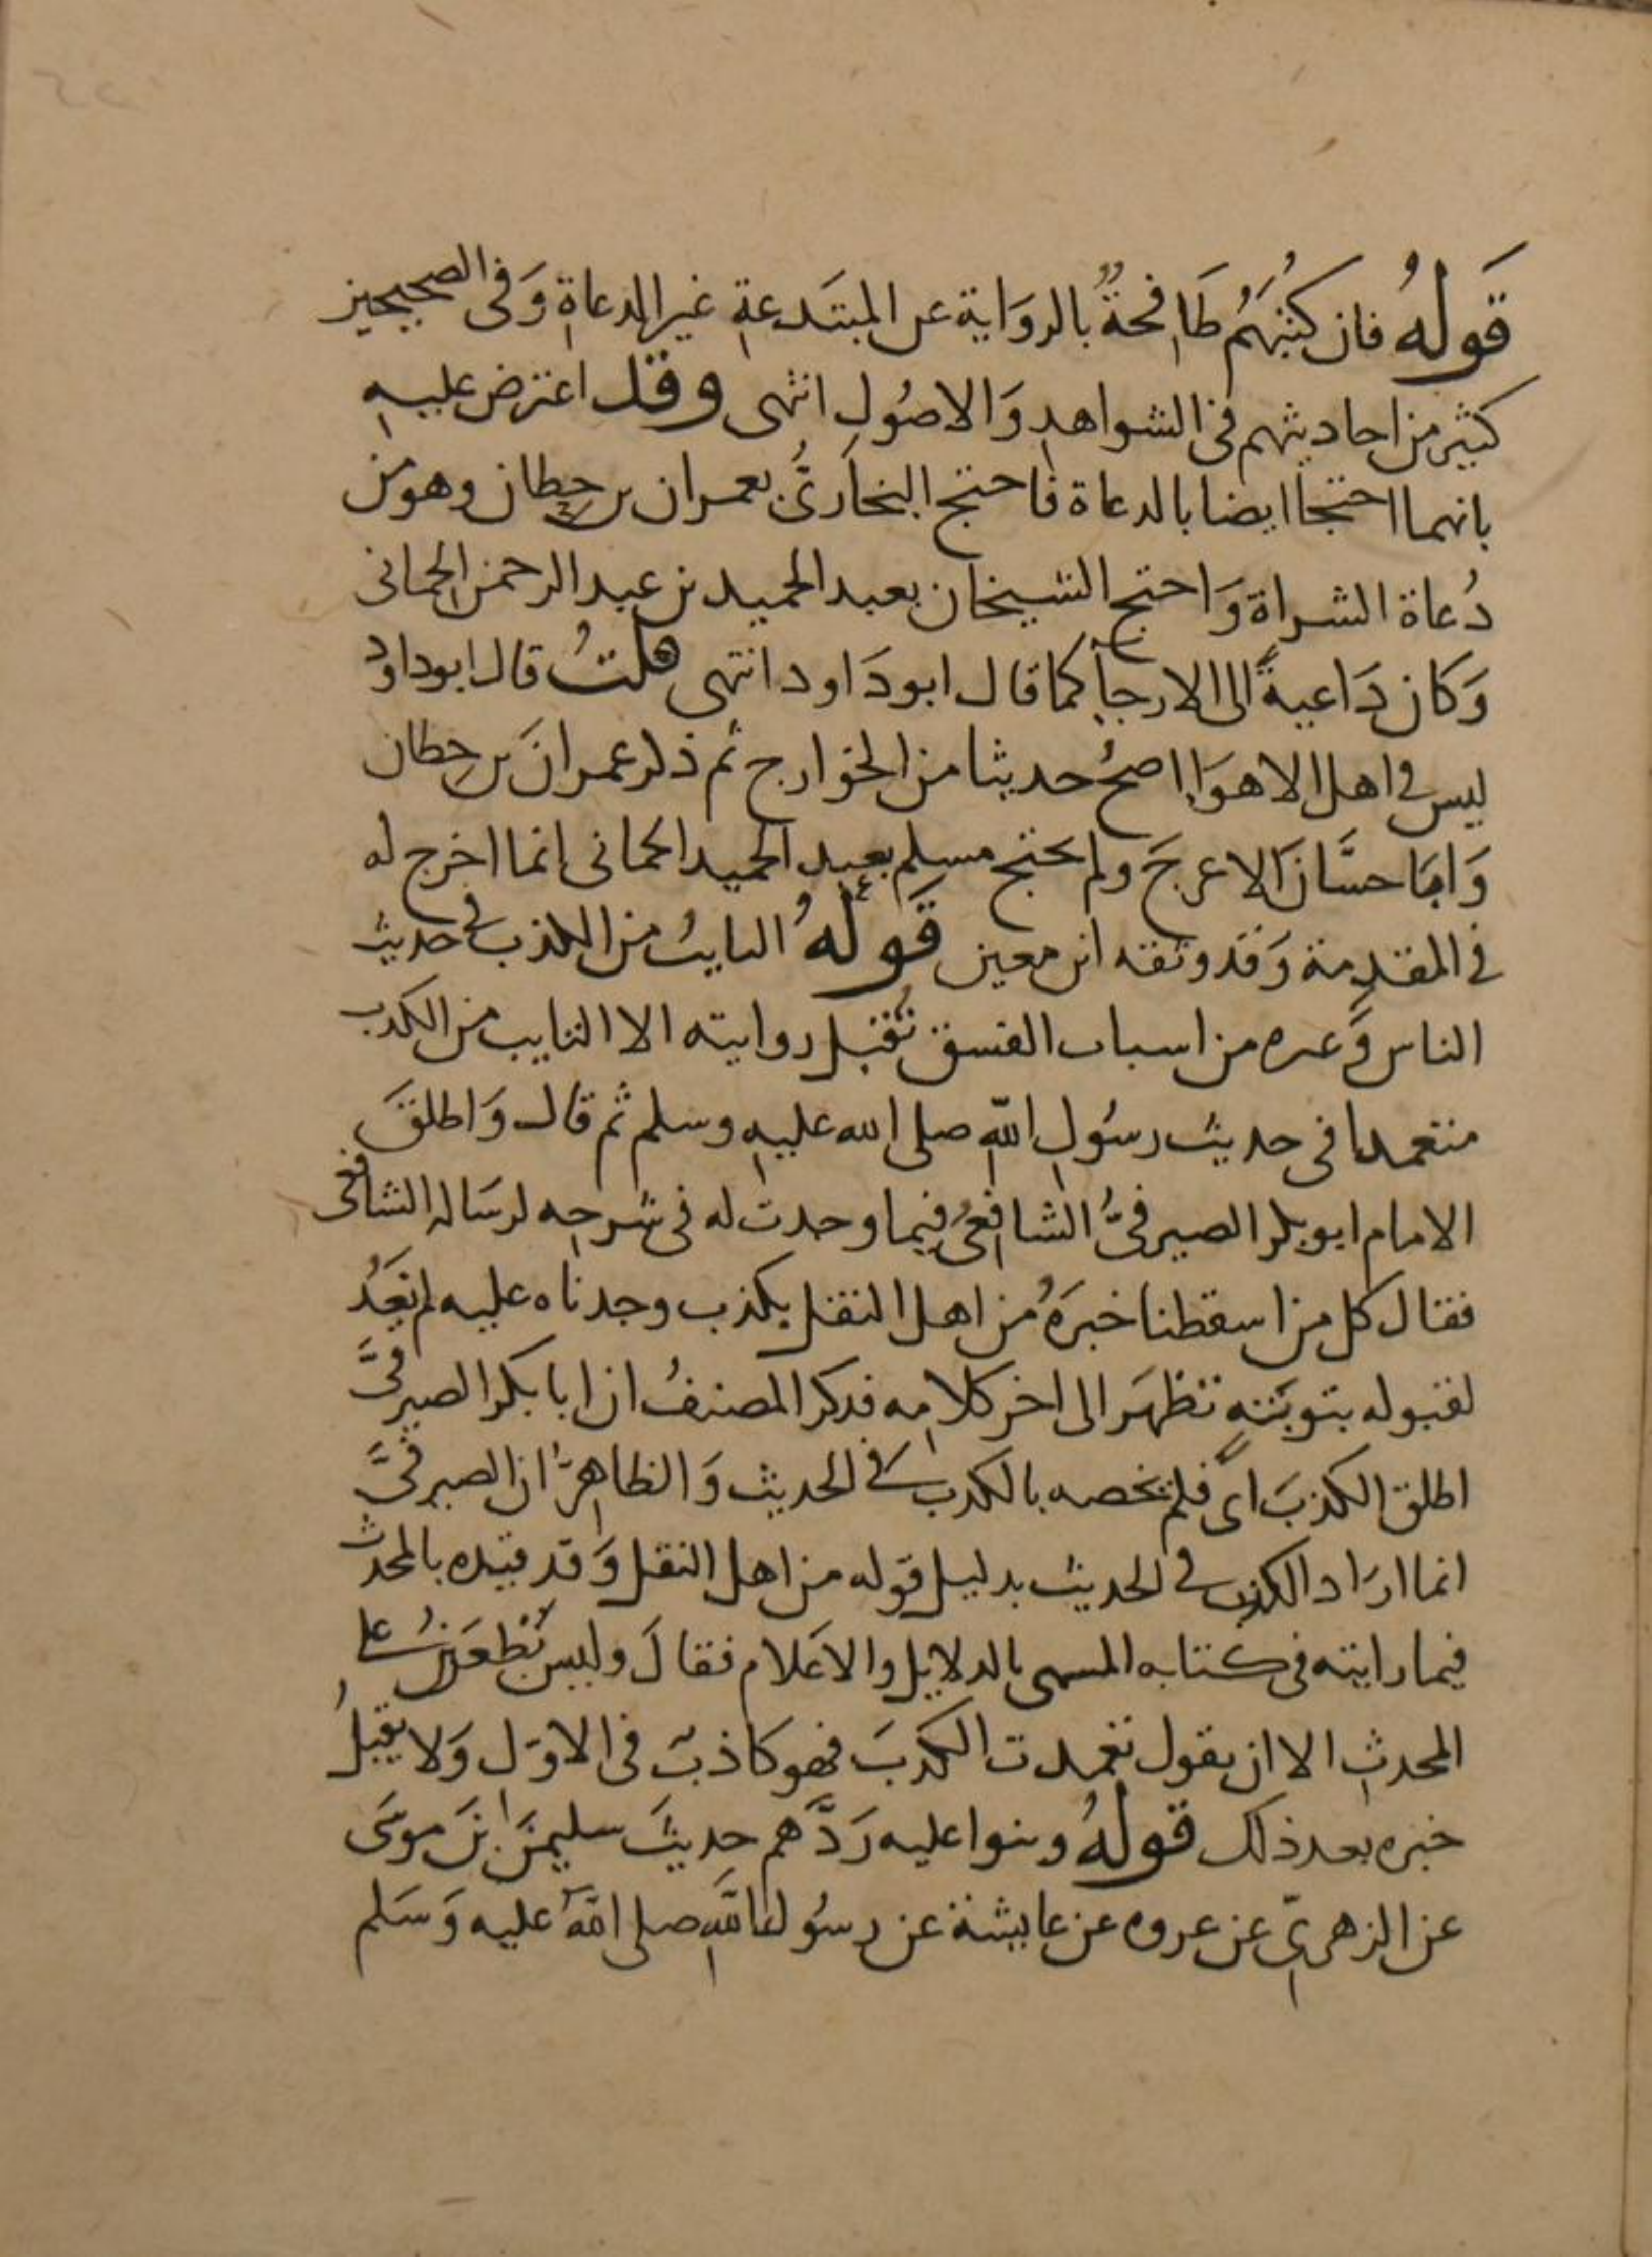 قَولُهُ فان كتبَهُم طَافِحةٌ بالروَاية عن المبتَدعةِ غير الدعاةِ وَفى الصحيحين
كثير من احاديثهم فى الشواهدِ وَالاصُولِ انتهى وقد اعترض عليهِ
بانهما احتجا ايضا بالدعاة فاحتج البخارىُّ بعمران بن حِطان وهو من
دُعاة الشراة وَاحتج الشيخان بعبد الحميد بن عبد الرحمن الحمانى
وَكان دَاعيةً الى الارجاءِ كما قال ابو دَاود انتهى قلتُ قال ابو داود
ليس فى اهل الاهوَاءِ اصحُ حديثا من الخوارج ثم ذكر عمرانَ بن حِطان
وَابَا حسَّانَ الاعرجَ ولم يحتج مسلم بعبد الحميد الحمانى انما اخرج له
فى المقدِمة وَقد وثقه ابن معين قَولُهُ التايبُ من الكذب فى حديث
الناس وَغيره من اسباب الفسق تُقبَل روايته الا التايب من الكذب
متعمدا فى حديث رسُولِ اللهِ صلى الله عليهِ وسلم ثم قال وَاطلقَ
الامام ابو بكر الصيرفىُّ الشافِعىُ فيما وجدت له فى شرحه لرسَالة الشافعى
فقال كل من اسقطنا خبرَهُ من اهل النقل بكذب وجدناه عليه لم نَعُد
لقبوله بتوبَتهِ تظهَر الى اخر كلامِه فذكر المصنفُ ان ابا بكر الصيرفىَّ
اطلق الكذبَ اى فلم يخصه بالكذب فى الحديث وَالظاهِرُ ان الصيرفىَّ
انما ارَاد الكذب فى الحديث بدليل قوله من اهل النقل وَقد قيده بالمحدث
فيما رايته فى كتابه المسمى بالدلايل والاعَلام فقالَ وليس يُطعَنُ على
المحدثِ الا ان يقول تعمدت الكذبَ فهو كاذبٌ فى الاوّل وَلا يقبلُ
خبره بعد ذلك قولهُ وبنوا عليه رَدَّهم حديثَ سليمنَ ابنَ موسَى
عن الزهرىِّ عن عروه عن عايشة عن رسُول اللهِ صلى اللهُ عليه وَسَلم